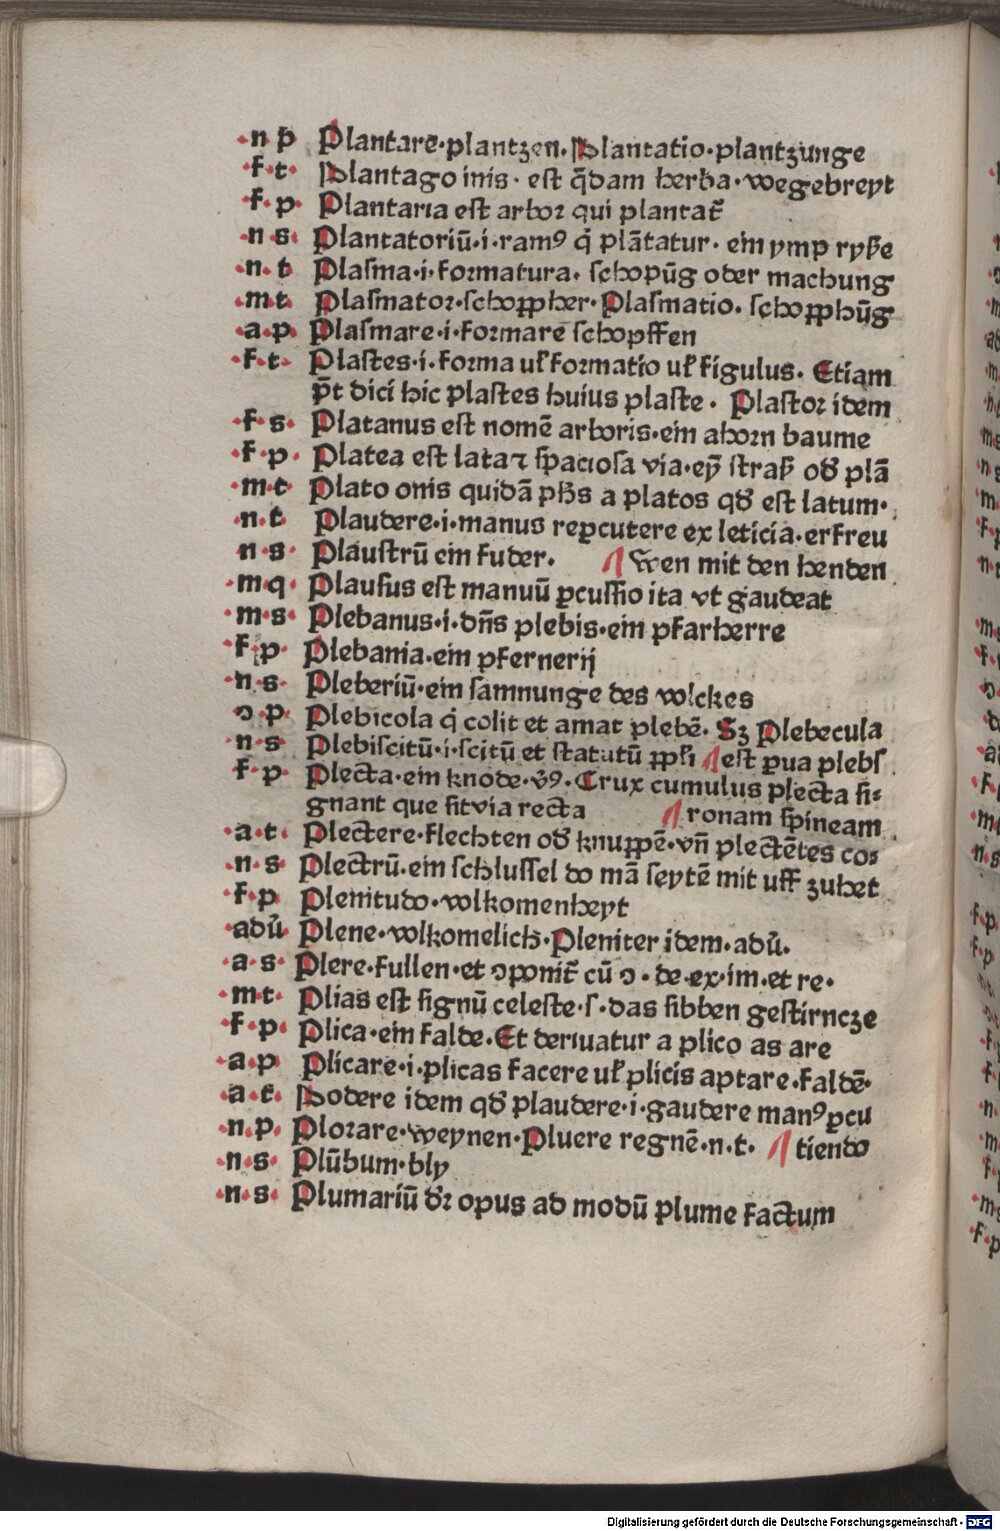 ·n p̄ Plantare·plantzen. Plantatio·plantzunge
·f·t· Plantago inis· est q̄dam herba·wegebreyt
·f·p· Plantaria est arbor qui plantat̄
·n s· Plantatoriū·i·ramꝰ q̇ plātatur· ein ymp ryße
·n·t Plasma·i·formatura· schopūg oder machung
·m·t· Plasmator·schoppher·Plasmatio· schopphūg
·a·p· Plasmare·i·formare schopffen
·f·t· Plastes·i·forma uł formatio uł figulus· Etiam
p̄t dici hic plastes huius plaste· Plastor idem
·f·s· Platanus est nomē arboris·ein ahorn baume
·f·p· Platea est lata ⁊ spaciosa via·eȳ straß od̛ plā
·m·t· Plato onis quidā ph̄s a platos qd̛ est latum·
·n·t· Plaudere·i·manus reꝑcutere ex leticia·erfreu
·n·s· Plaustrū ein fuder· ¶ wen mit den henden
·m·q· Plausus est manuū ꝑcussio ita vt gaudeat
·m·s· Plebanus·i·dn̄s plebis·ein pfarherre
·f·p· Plebania·ein pfernerij
·n·s· Pleberiū·ein samnunge des volckes
·ↄ·p· Plebicola q̇ colit et amat plebē· Sꝫ Plebecula
·n·s· Plebiscitū·i·scitū et statutū ꝓpłi ¶ est ꝑua plebs
·f·p· Plecta·ein knode·v̄ꝰ·Crux cumulus plecta si⸗
gnant que fit via recta ¶ ronam spineam
·a·t· Plectere·flechten od̛ knuppē·vn̄ plectētes co⸗
·n·s· Plectrū·ein schlussel do mā seytē mit uff zuhet
·f·p Plenitudo·volkomenheyt
·adū· Plene·volkomelich·Pleniter idem·adū·
·a·s· Plere·fullen·et ↄponit̄ cū ↄ·de·ex·im·et re·
·m·t· Plias est signū celeste·s·das sibben gestirncze
·f·p· Plica·ein falde·Et deriuatur a plico as are
·a·p Plicare·i·plicas facere uł plicis aptare·faldē·
·a·t· Plodere idem qd̛ plaudere·i·gaudere manꝰ ꝑcu
·n·p· Plorare·weynen·Pluere regnē·n·t· ¶ tiendo
·n·s· Plūbum·bly
·n·s· Plumariū d̛r opus ad modū plume factum
Digitalisierung gefördert durch die Deutsche Forschungsgemeinschaft - DFG